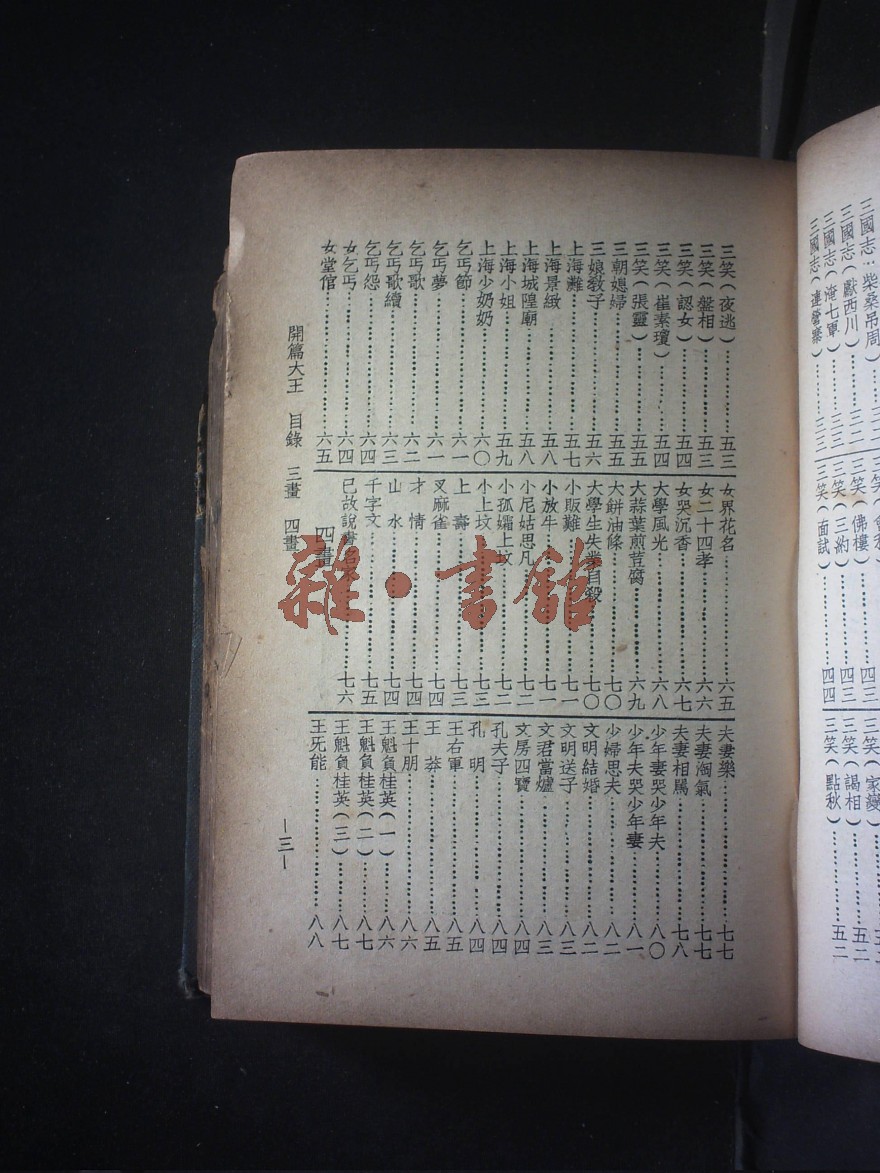 三國志:柴桑吊周
三國志(獻西川)……三二
三國志(淹七軍)……三二
三國志(連營寨)……三三
三笑(佛樓)……四三
三笑(三約)……四三
三笑(面試)……四四
三笑(家變)
三笑(謁相)……五二
三笑(點秋)……五二
三笑(夜逃)……五三
三笑(盤相)……五三
三笑(認女)……五四
三笑(崔素瓊)……五四
三笑(張靈)……五五
三朝媳婦……五五
三娘教子……五六
上海灘……五七
上海景緻……五八
上海城隍廟……五八
上海小姐……五九
上海少奶奶……六〇
乞丐節……六一
乞丐夢……六一
乞丐歌……六二
乞丐歌續……六三
乞丐怨……六四
女乞丐……六四
女堂倌……六五
女界花名……六五
女二十四孝……六六
女哭沉香……六七
大學風光……六八
大蒜葉煎荳腐……六九
大餅油條……七〇
大學生失業自殺……七〇
小販難……七一
小放牛……七一
小尼姑思凡……七二
小孤孀上坟……七二
小上坟……七三
上壽……七三
叉麻雀……七四
才情……七四
山水……七四
千字文……七五
已故說書名……七六
四畫
夫妻樂……七七
夫妻淘氣……七七
夫妻相罵……七八
少年妻哭少年夫……八〇
少年夫哭少年妻……八一
少婦思夫……八二
文明結婚……八二
文明送子……八三
文君當爐……八三
文房四寶……八四
孔夫子……八四
孔明……八四
王右軍……八五
王莽……八五
王十朋……八六
王魁負桂英(一)……八六
王魁負桂英(二)……八七
王魁負桂英(三)……八七
王旡能……八八
開篇大王 目錄 三畫 四畫 —三—
雜·書館